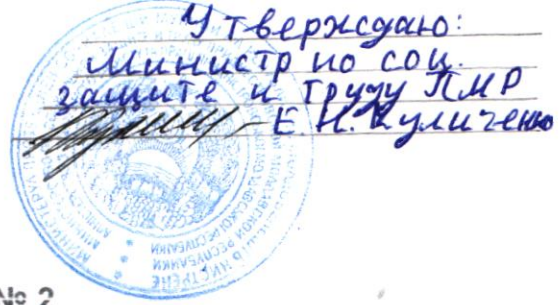 Утверждаю:
Министр по соц.
защите и труду ПМР
Е. Н. Куличенко
№ 2